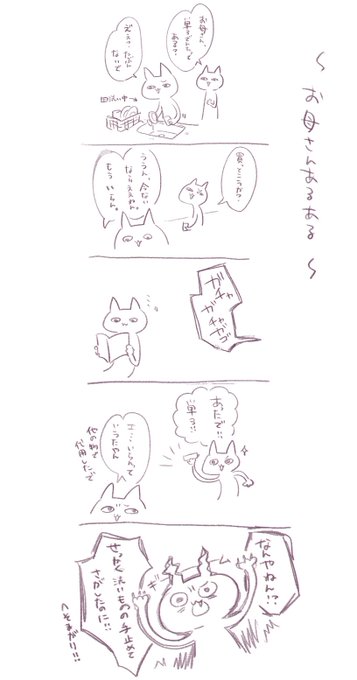 〜お母さんあるある〜
お母さん、
単3でんちって
ある?
ええ?たぶん
ないで
皿洗い中→
買っとこうか?
ううん、今ない
ならええねん。
もういらん。
ガチャ
ガチャガゴ
あったで!!
単3!!
エ…いらんて
いうたやん
他の物で
代用したで
なんやねん!?
せっかく洗いものの手止めて
さがしたのに!!
へそまがり!!